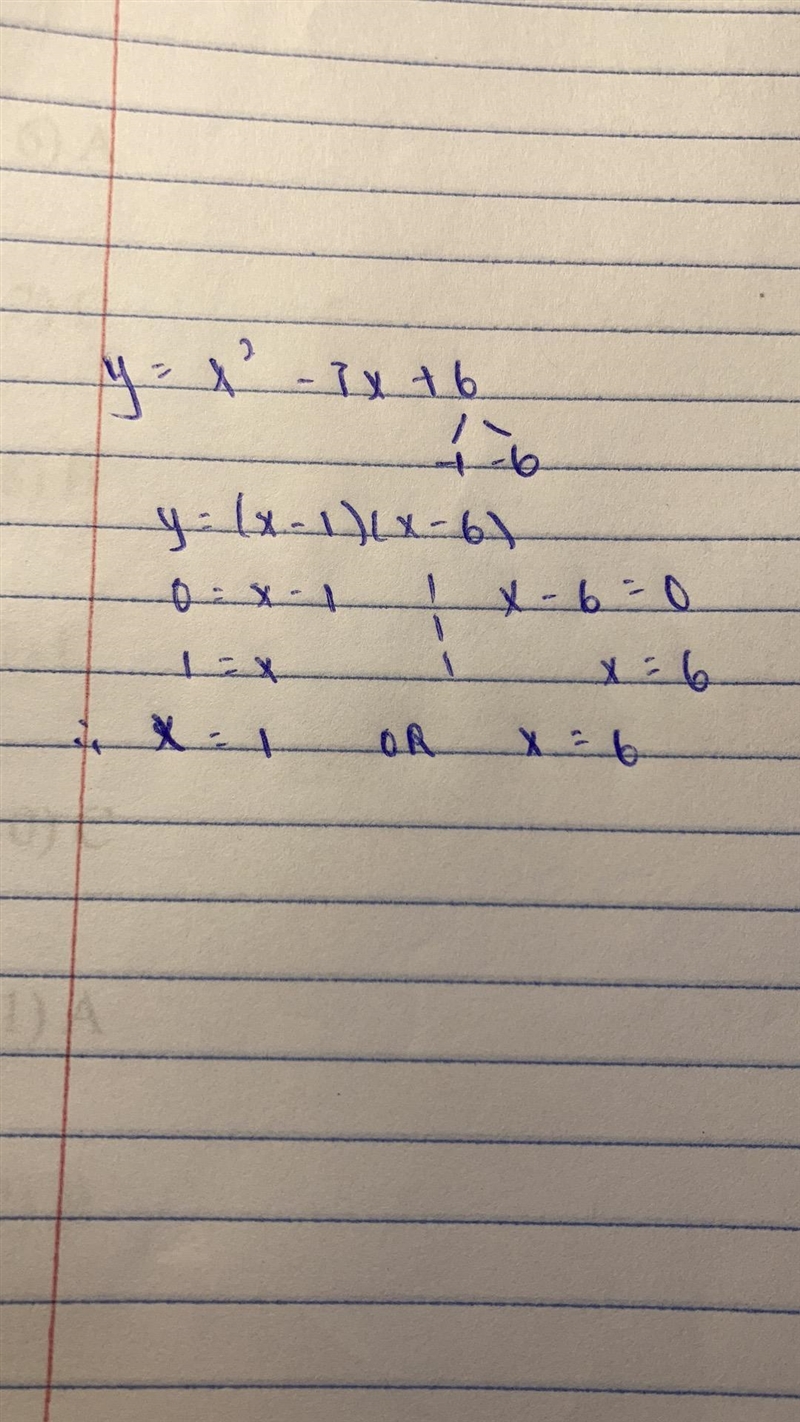 y = x² - 7x + 6
-1 -6
y = (x - 1)(x - 6)
0 = x - 1 | x - 6 = 0
1 = x | x = 6
∴ x = 1 OR x = 6